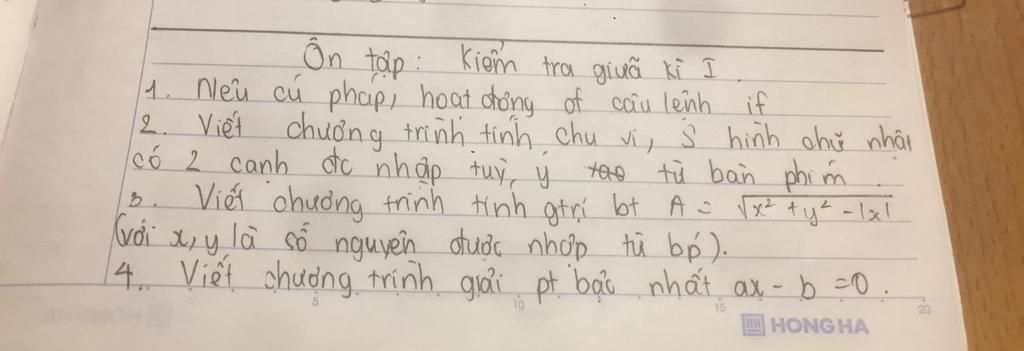 Ôn tập: Kiểm tra giưã kì I.
1. Nêu cú pháp, hoạt động of câu lệnh if
2. Viết chương trình tính chu vi, S hình chữ nhật
có 2 cạnh đc nhập tuỳ, ý từ bàn phím.
3. Viết chương trình tính gtrị bt A = √x² + y² - |x|
(với x, y là số nguyên được nhập từ bp).
4. Viết chương trình giải pt bậc nhất ax - b = 0.
5 10 15 20
HH HONG HA